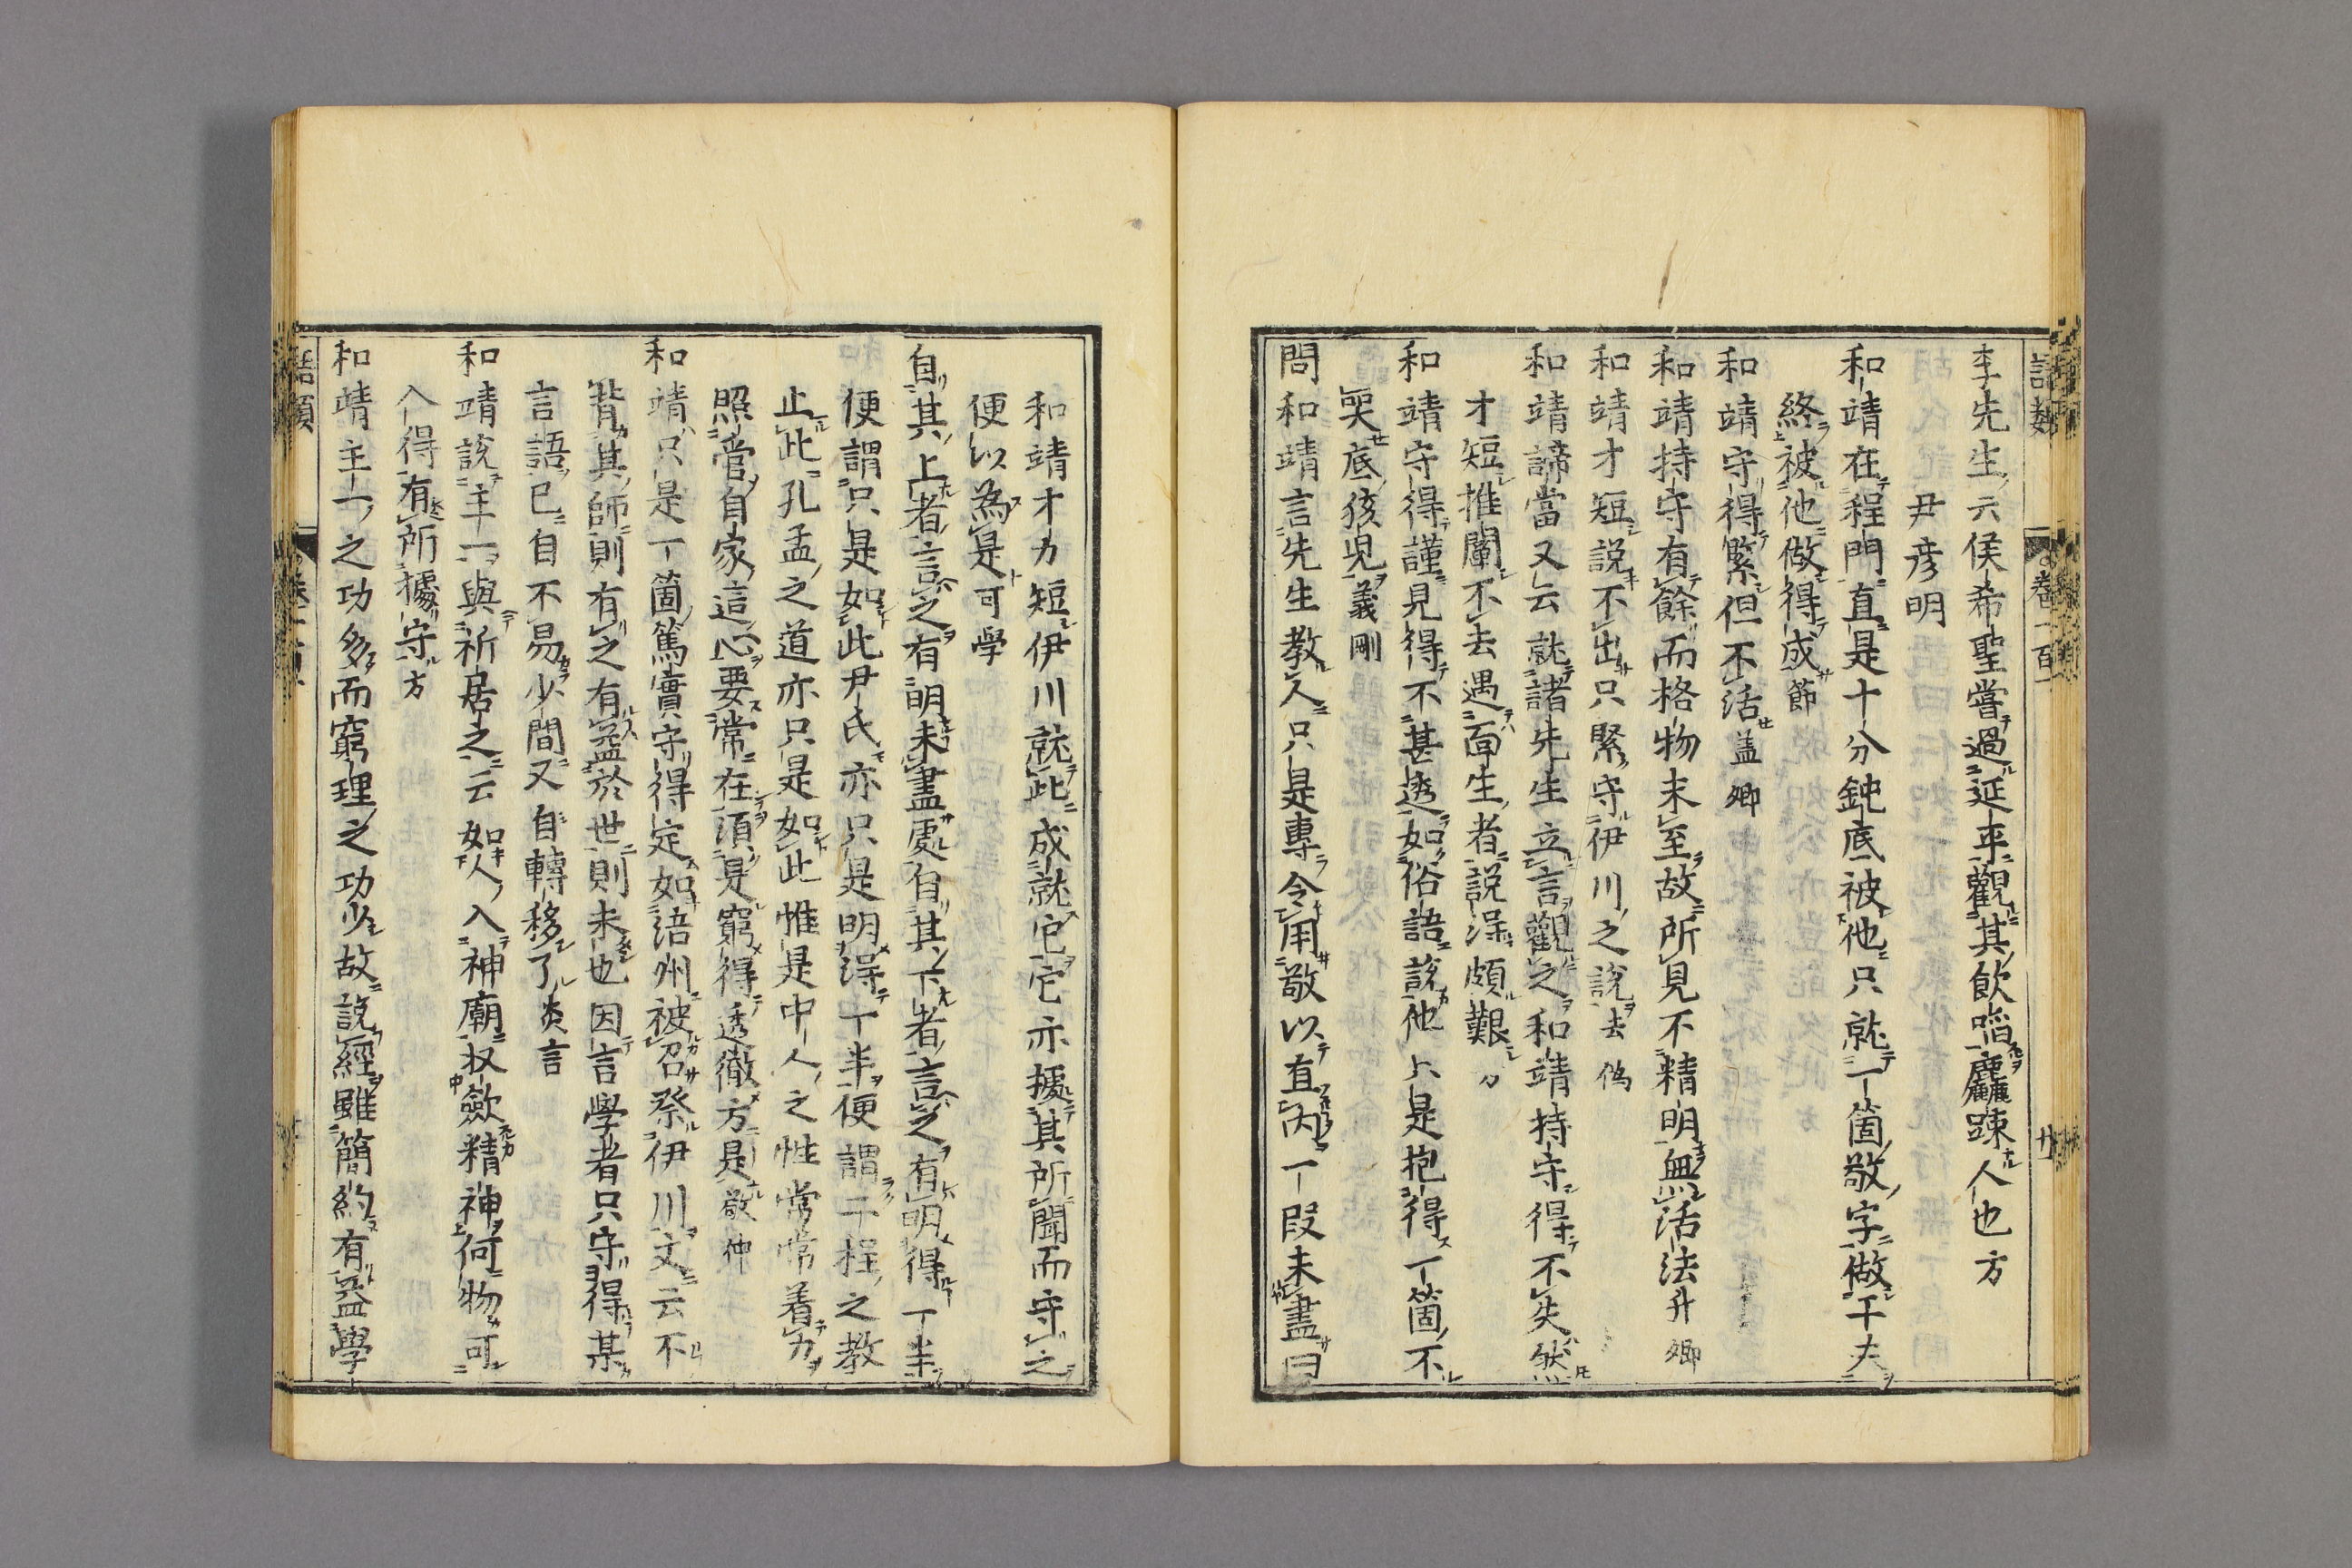 李先生云侯希聖嘗過延平觀其飲啗麤踈人也方
尹彦明
和靖在程門直是十分鈍底被他只就一箇敬字做工夫
終被他做得成節
和靖守得緊但不活蓋卿
和靖持守有餘而格物未至故所見不精明無活法升卿
和靖才短說不出只緊守伊川之說去偽
和靖諦當又云就諸先生立言觀之和靖持守得不失然
才短推闡不去遇面生者說得頗艱方
和靖守得謹見得不甚透如俗語說他只是抱得一箇不
哭底孩児義剛
問和靖言先生教人只是專令用敬以直内一段未盡曰
和靖才力短伊川就此成就它它亦據其所聞而守之
便以為是可學
自其上者言之有明未盡處自其下者言之有明得一半
便謂只是如此尹氏亦只是明得一半便謂二程之教
止此孔孟之道亦只是如此惟是中人之性常常着力
照管自家這心要常在須是窮得透徹方是敬仲
和靖只是一箇篤實守得定如涪州被召祭伊川文云不
背其師則有之有益於世則未也因言學者只守得某
言語已自不易少間又自轉移了炎言
和靖說主一與祈居之云如人入神廟收歛精神何物可
入得有所據守方
和靖主一之功多而窮理之功少故說經雖簡約有益學
語類
卷一百一
廿